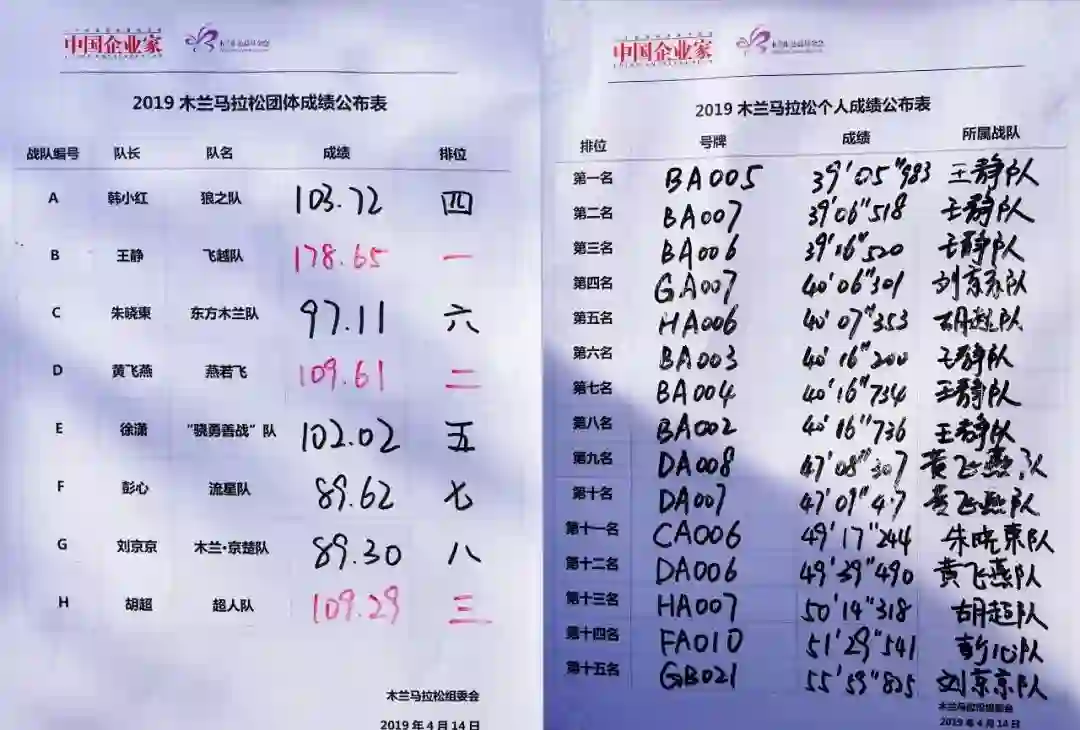 中国企业家
2019 木兰马拉松团体成绩公布表
战队编号 队长 队名 成绩 排位
A 韩小红 狼之队 103.72 四
B 王静 飞越队 178.65 一
C 朱晓東 东方木兰队 97.11 六
D 黄飞燕 燕若飞 109.61 二
E 徐潇 “骁勇善战”队 102.02 五
F 彭心 流星队 89.62 七
G 刘京京 木兰·京楚队 89.30 八
H 胡超 超人队 109.29 三
木兰马拉松组委会
2019 年 4 月 14 日
中国企业家
2019 木兰马拉松个人成绩公布表
排位 号牌 成绩 所属战队
第一名 BA005 39'05"983 王静队
第二名 BA007 39'06"518 王静队
第三名 BA006 39'16"520 王静队
第四名 GA007 40'06"301 刘京京队
第五名 HA006 40'07"353 胡超队
第六名 BA003 40'16"200 王静队
第七名 BA004 40'16"734 王静队
第八名 BA002 40'16"736 王静队
第九名 DA008 47'08"307 黄飞燕队
第十名 DA007 黄飞燕队
第十一名 CA006 49'17"244 朱晓東队
第十二名 DA006 49'39"490 黄飞燕队
第十三名 HA007 50'14"318 胡超队
第十四名 FA010 51'29"541 彭心队
第十五名 GB021 55'59"825 刘京京队
木兰马拉松组委会
2019 年 4 月 14 日